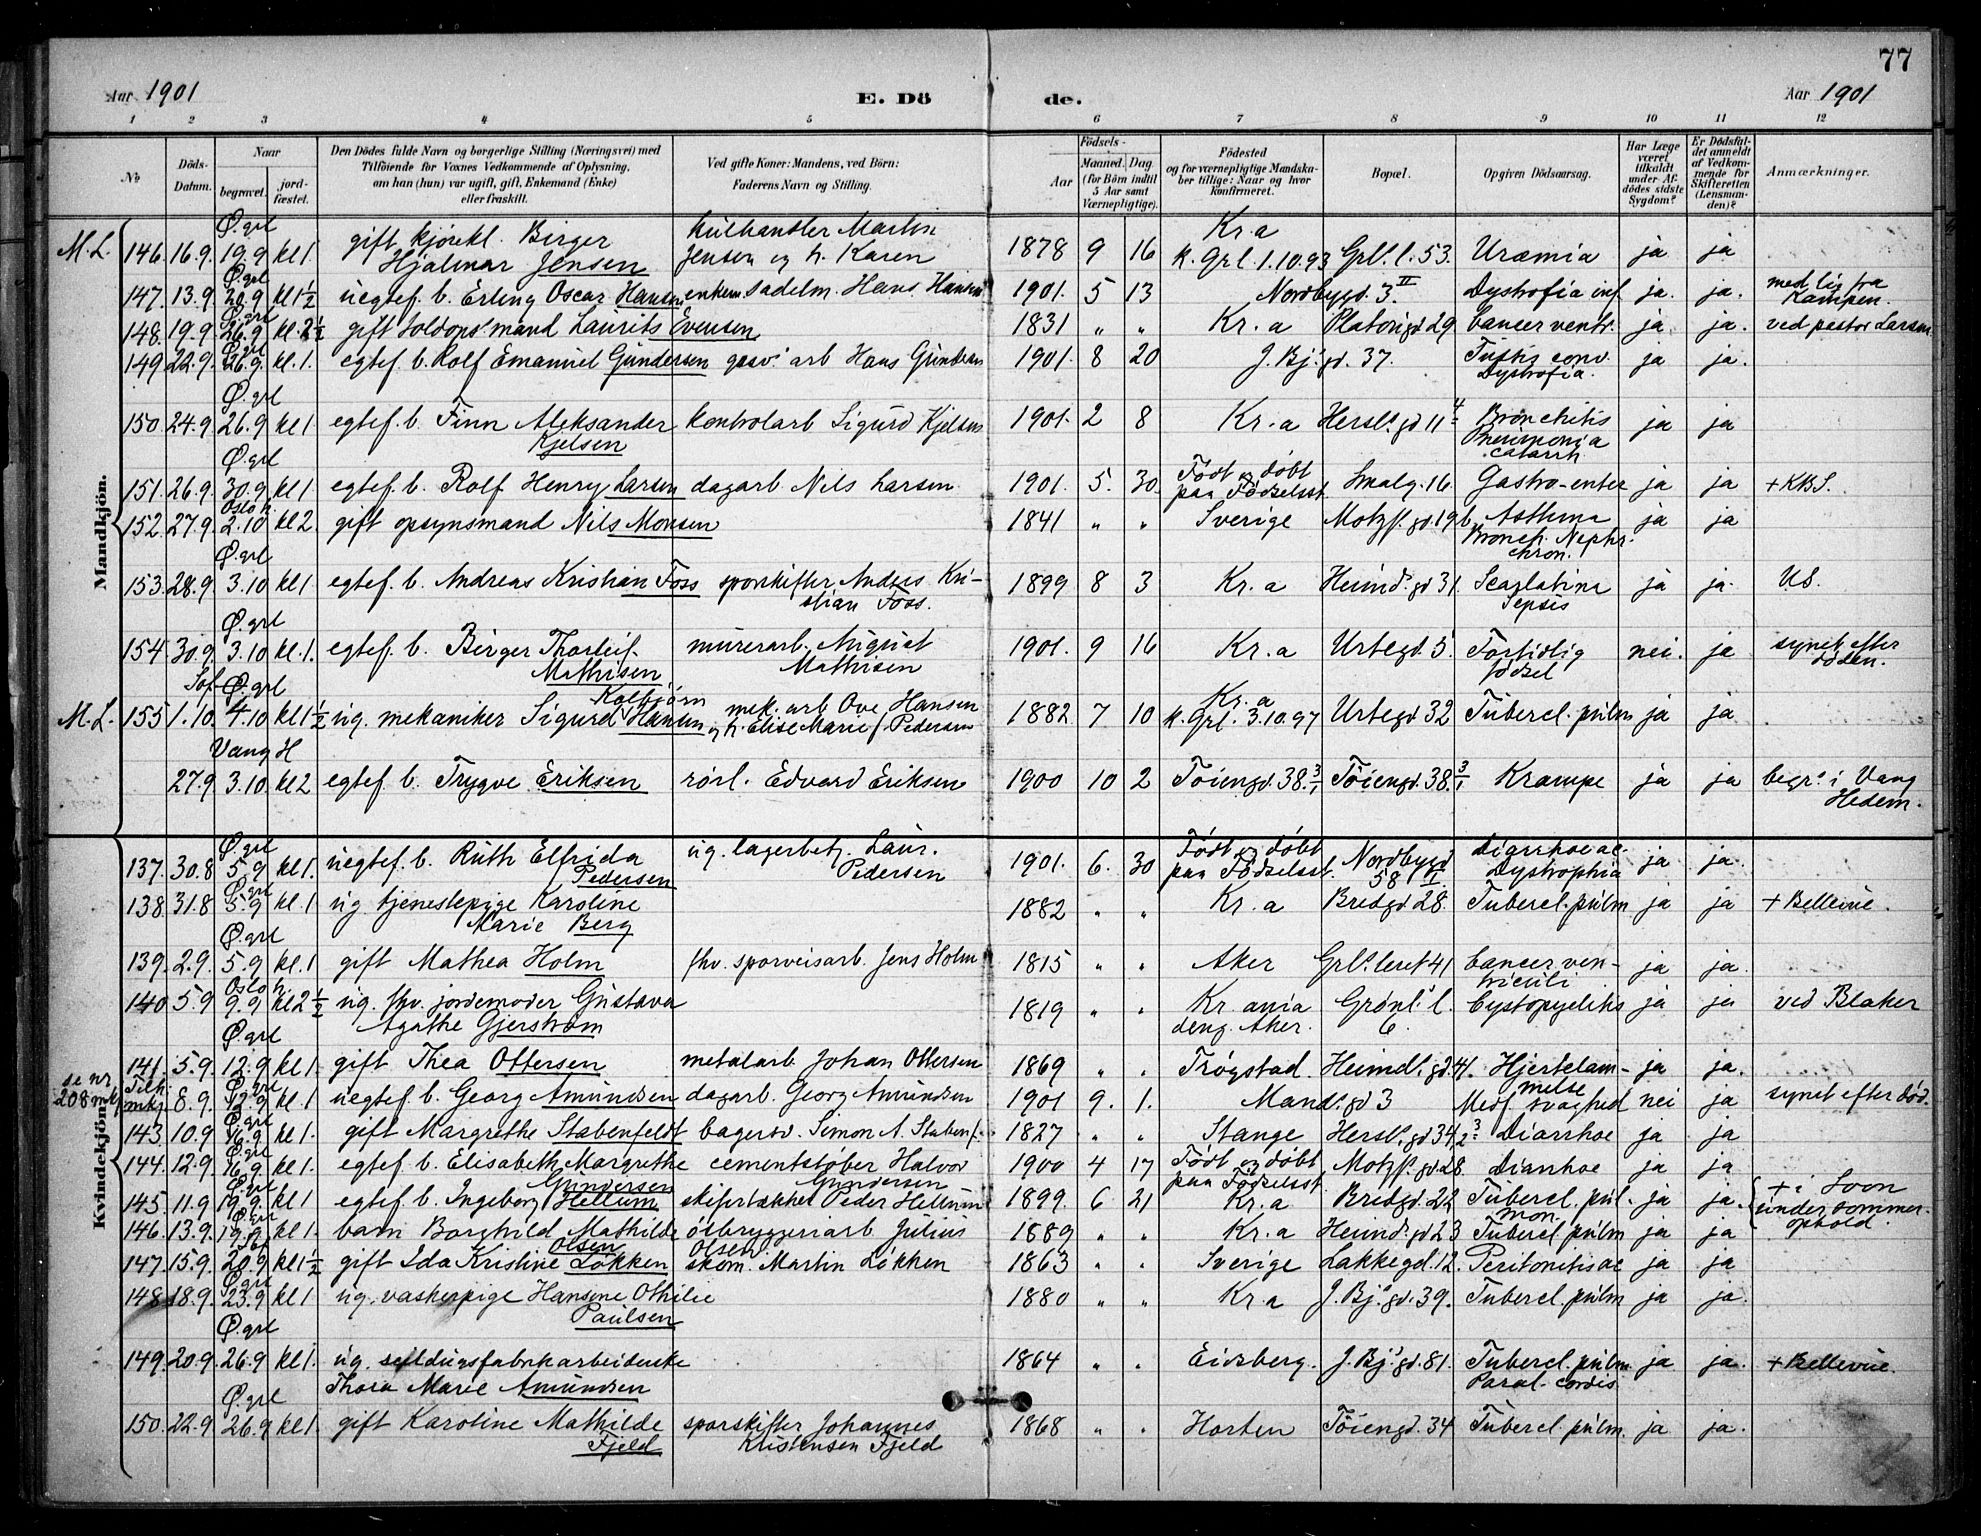 77
Aar 1901 E. Dö de. Aar 1901
1 2 3 4 5 6 7 8 9 10 11 12
№ Döds-Datum. Naar begravet. jordfæstet. Den Dödes fulde Navn og borgerlige Stilling (Næringsvei) med Tilföiende for Voxnes Vedkommende af Oplysning, om han (hun) var ugift, gift, Enkemand (Enke) eller fraskilt. Ved gifte Koner: Mandens, ved Börn: Faderens Navn og Stilling. Födsels- Aar Maaned. Dag. (for Börn indtil 5 Aar samt Værnepligtige). Födested og for værnepligtige Mandskaber tillige: Naar og hvor konfirmeret. Bopæl. Opgiven Dödsaarsag. Har Læge været tilkaldt under Afdödes sidste Sygdom? Er Dödsfaldet anmeldt af Vedkommende for Skifteretten (Lensmanden)? Anmærkninger.
Mandkjön.
M.L. 146. 16.9. Ø.grl 19.9 kl 1. gift kjørekl. Birger Hjalmar Jensen kulhandler Martin Jensen og h. Karen 1878 9 16 Kr.a k. Grl. 1.10.93 Grl. l. 53. Uræmia ja ja
147. 13.9. Ø.grl 20.9 kl 1½ uegtef. b. Erling Oscar Hansen enkem. sadelm. Hans Hansen 1901. 5 13 Nordbygd. 3 II Dystrofia inf. ja. ja. med lig fra Kampen.
148. 19.9 Ø.grl 26.9 kl. 2½ gift toldops'mand Laurits Evensen 1831 " " Kr.a Platousgd 29 Cancer ventr. ja ja. ved pastor Larsen
149. 22.9. Ø.grl 26.9. kl. 1. egtef. b. Rolf Emanuel Gundersen gasv. arb Hans Gundersen 1901. 8 20 J. Bj. gd. 37. Tussis conv. Dystrofia. ja ja.
150. 24.9. Ø.grl 26.9 kl 1 egtef. b. Finn Aleksander Kjelsen kontrolarb Sigurd Kjelsen 1901. 2 8 Kr.a Hersl. gd 11 4 Bronchitis Pneumonia catarrh. ja ja
151. 26.9. Ø.grl 30.9 kl 1 egtef. b. Rolf Henry Larsen dagarb. Nils Larsen. 1901. 5. 30. Født og døbt paa Fødselsst. Smalg. 16 Gastro-enter ja ja + KBS.
152. 27.9. Oslo h. 2.10 kl 2. gift opsynsmand Nils Monsen 1841 " " Sverige Motzf. gd. 19 b. Asthma Bronch. Nephr. chron. ja ja
153. 28.9. Ø.grl 3.10 kl 1 egtef. b. Andreas Kristian Foss sporskifter Anders Kristian Foss. 1899 8 3 Kr.a Heimd. gd 31. Scarlatina Sepsis ja ja. US.
154. 30.9. Ø.grl 3.10 kl. 1. egtef. b. Birger Thorleif Mathisen murerarb. August Mathisen 1901. 9 16 Kr.a Urtegd. 5. Fortidlig fødsel nei. ja synet efter døden.
M.L. 155. 1.10. Ø.grl 4.10 kl 1½ ug. mekaniker Sigurd Kolbjørn Hansen mek. arb Ove Hansen og h. Elise Marie f. Pedersen 1882 7 10 Kr.a k. Grl. 3.10.97 Urtegd 32 Tubercl. pulm ja ja
27.9 Vang H 3.10 kl 2 egtef. b. Trygve Eriksen rørl. Edvard Eriksen 1900 10 2 Tøiengd. 38. 3/1 Tøiengd. 38. 3/1 Krampe ja ja begr. i Vang Hedem.
Kvindekjön.
137. 30.8 Ø.grl 5.9 kl 1. uegtef. b. Ruth Elfrida Pedersen ug. lagerbetj. Laur. Pedersen 1901. 6. 30 Født og døbt paa Fødselsst. Nordbygd 58 II. Diarrhoe ac- Dystrophia ja ja.
138. 31.8 Ø.grl 5.9 kl 1 ug. tjenestepige Karoline Marie Berg 1882 " " Kr.a Bredgd 28. Tubercl. pulm ja ja + Bellevue.
139. 2.9. Ø.grl 5.9 kl. 1 gift Mathea Holm fhv. sporveisarb. Jens Holm 1815 " " Aker Grl. leret 41 Cancer ventriculi ja ja.
140. 5.9 Oslo h. 9.9 kl 2½ ug. fhv. jordemoder Gustava Agathe Gjerstrøm 1819 " " Kr.ania deng. Aker. Grønl. l. 6. Cystopyelitis ja ja ved Blaker
141. 5.9. Ø.grl 12.9 kl 1. gift Thea Ottersen metalarb Johan Ottersen 1869 " " Trøgstad. Heimd. gd. 41. Hjertelammelse ja ja.
se nr 208 mkj Tilh. mkj. 8.9. Ø.grl 12.9 kl 1 uegtef. b. Georg Amundsen dagarb. Georg Amundsen 1901 9. 1. Mand. gd 3 Medf. svaghed nei ja synet efter død.
143. 10.9 Ø.grl 16.9 kl 1. gift Margrethe Stabenfeldt bagersv. Simon A. Stabenf. 1827 " " Stange Hersl. gd 34 2 3 Diarrhoe ja ja
144. 12.9. Ø.grl 16.9 kl 1. egtef. b. Elisabeth Margrethe Gundersen cementstøber Halvor Gundersen 1900 4 17 Født og døbt paa Fødselsst. Motzf. gd 28 Diarrhoe ja ja
145. 11.9 Ø.grl 19.9. kl 1 egtef. b. Ingeborg Hellum skifertækker Peder Hellum 1899. 6 21 Kr.a Bredgd 22 Tubercl. pulmon. ja ja. { + i Soon under sommerophold.
146. 13.9. Ø.grl 19.9. kl 1. barn Borghild Mathilde Olsen ølbryggeriarb Julius Olsen. 1889 " " Kr.a Heimd. gd 23 Tubercl. pulm ja ja
147. 15.9. 20.9 kl 1½ gift Ida Kristine Løkken skom. Martin Løkken 1863 " " Sverige Lakkegd. 12. Peritonitis ac ja ja
148 18.9. Ø.grl 23.9 kl 1 ug. vaskerpige Hansine Othilie Paulsen 1880 " " Kr.a J. Bj. gd. 39. Tubercl. pulm ja ja.
149. 20.9. Ø.grl 26.9 kl 1. ug. seildugsfabrikarbeiderske Thora Marie Amundsen 1864 " " Eidsberg. J. Bj. gd. 81. Tubercl. pulm. Paral. cordis ja ja. + Bellevue.
150. 22.9. Ø.grl 26.9 kl 1. gift Karoline Mathilde Fjeld sporskifter Johannes Kristensen Fjeld 1868 " " Horten Tøiengd. 34 Tubercl. pulm. ja ja.